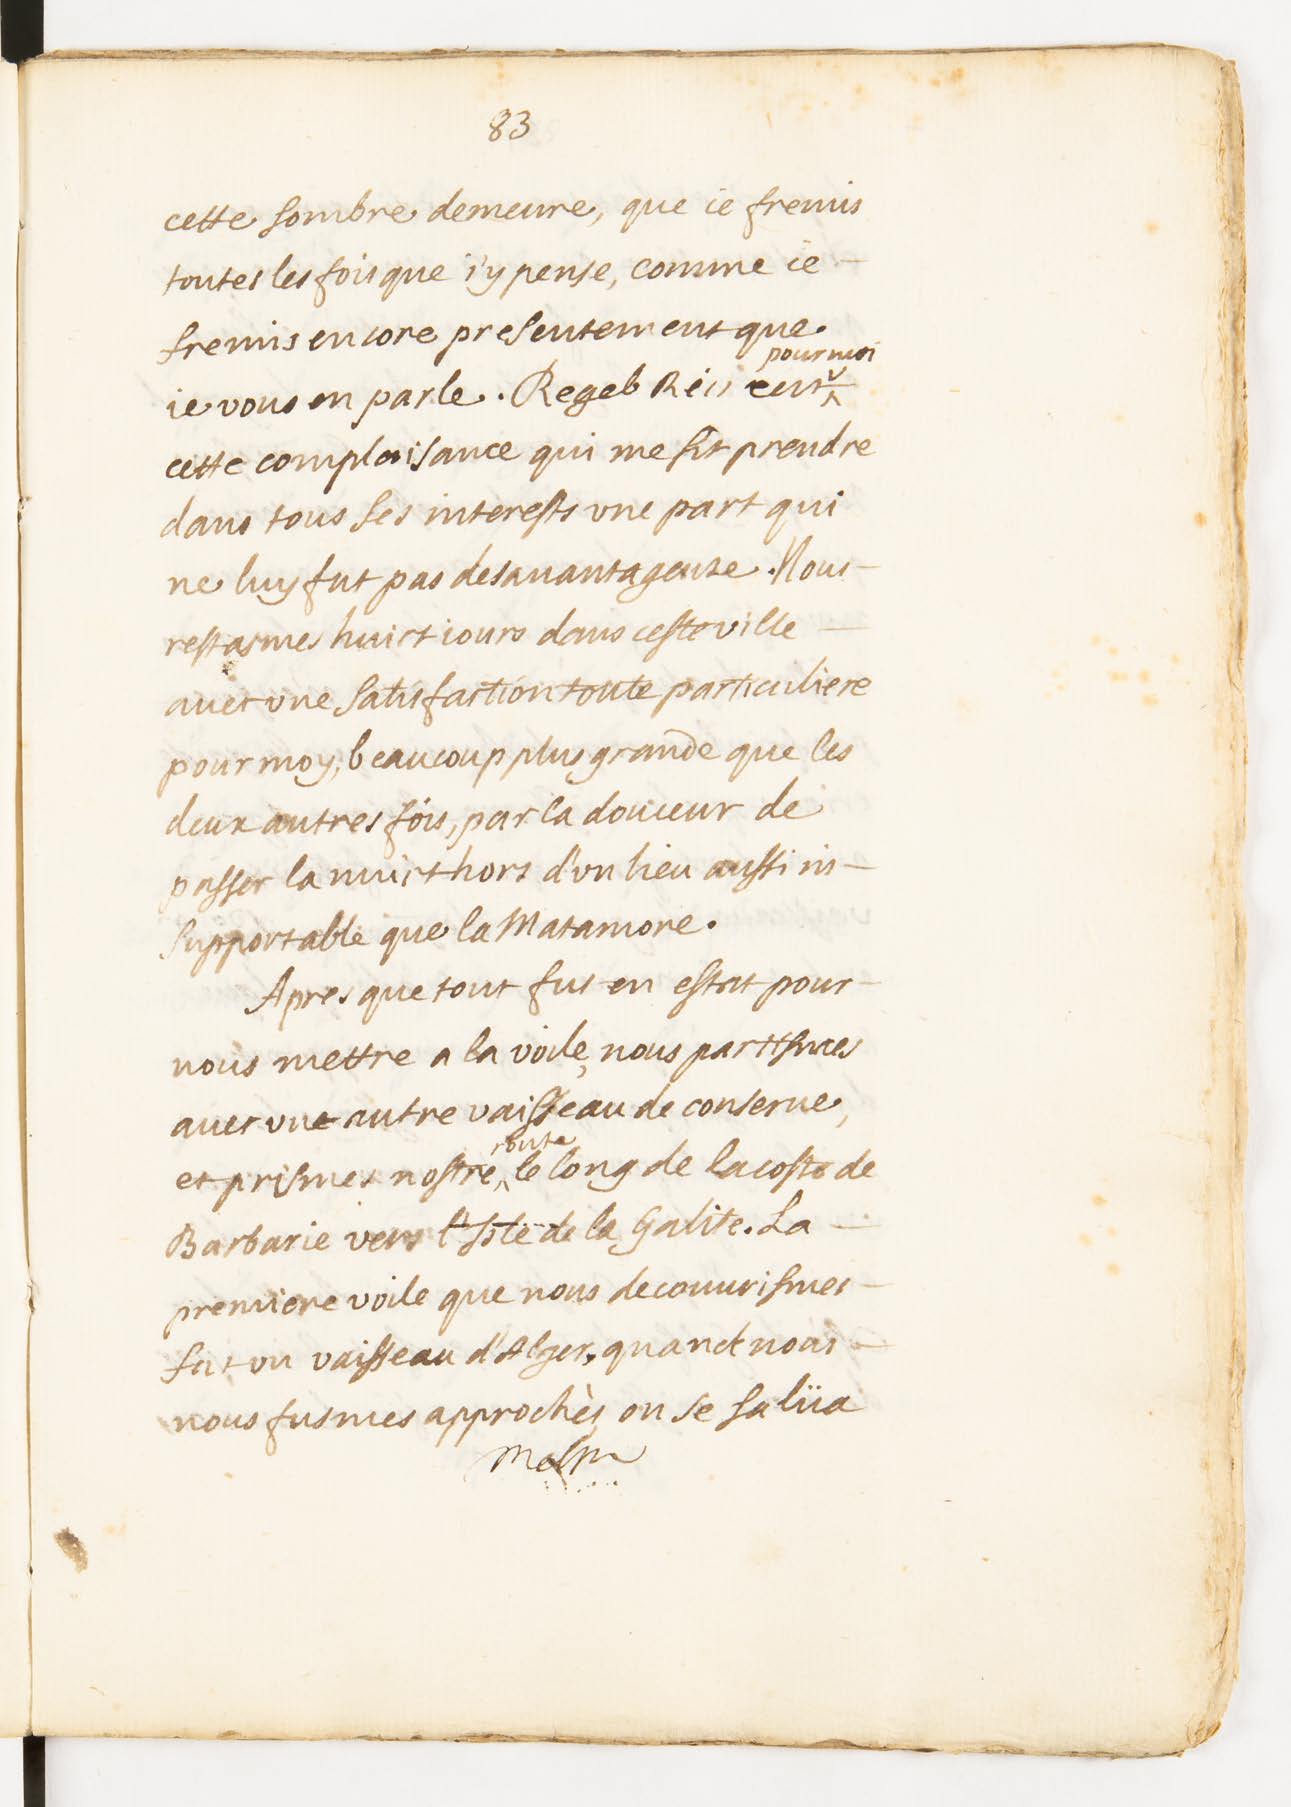 83
cette sombre demeure, que ie fremis
toutes les fois que i'y pense, comme ie
fremis encore presentement que
pour moi
ie vous en parle. Regeb Reis eut
cette complaisance qui me fit prendre
dans tous ses interests vne part qui
ne luy fut pas desauantageuse. Nous
restasmes huict iours dans ceste ville
auec vne satisfaction toute particuliere
pour moy, beaucoup plus grande que les
deux autres fois, par la douceur de
passer la nuict hors d'vn lieu aussi in-
supportable que la Matamore.
Apres que tout fut en estat pour
nous mettre a la voile, nous partismes
auec vne autre vaisseau de conserue,
route
et prismes nostre le long de la coste de
Barbarie vers l'Isle de la Galite. La
premiere voile que nous decouurismes
fut vn vaisseau d'Alger, quand nous
nous fusmes approchès on se salüa